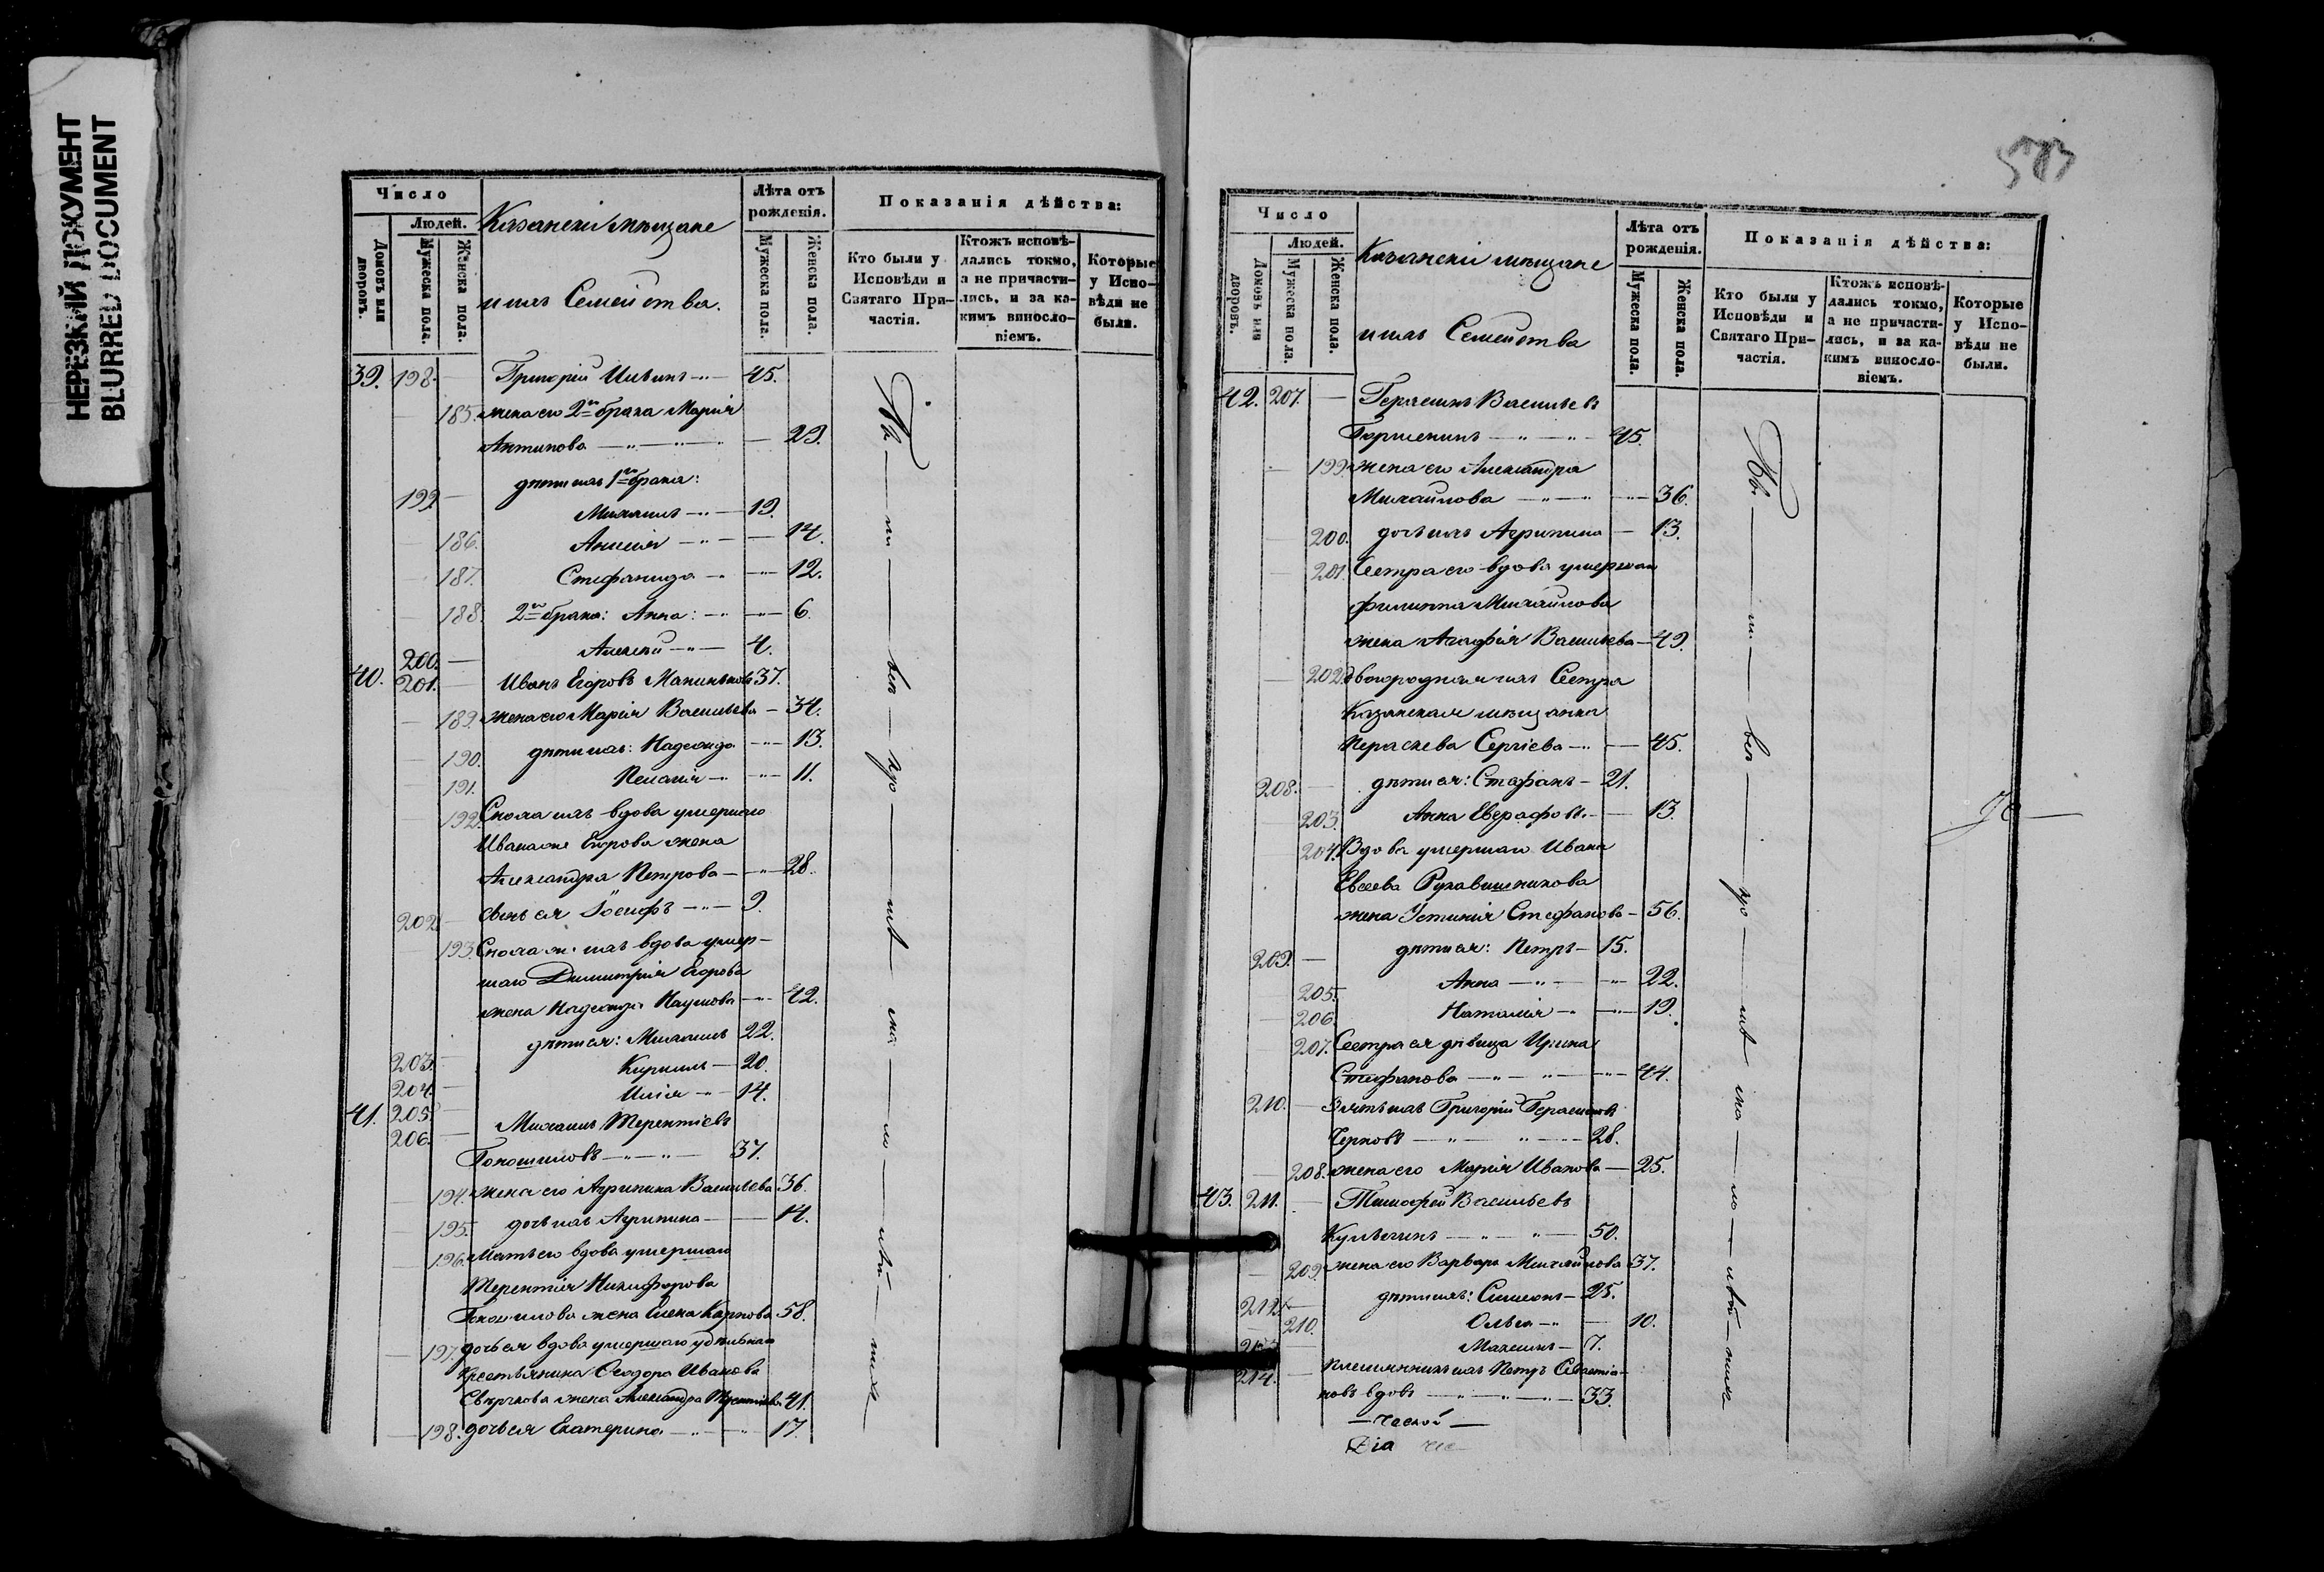 НЕРЕЗКИЙ ДОКУМЕНТ
BLURRED DOCUMENT
Число
Людей.
Домовъ или дворовъ.
Мужеска пола.
Женска пола.
Казанскіи мѣщане
и ихъ Семейства.
Лѣта отъ рожденія.
Мужеска пола.
Женска пола.
Показанія дѣйства:
Кто были у Исповѣди и Святаго Причастія.
Ктожъ исповѣдались токмо, а не причастились, и за какимъ винословіемъ.
Которые у Исповѣди не были.
39. 198. — Григорій 45.
185. жена его 2го брака Марія
Антипова — 29.
дѣти ихъ 1го брака:
199. Михаилъ — 19.
186. Анисія — 14.
187. Стефанида — 12.
188. 2го брака: Анна: — 6.
200. — Алексей — 4.
40. 201. — Иванъ Егоровъ 37.
189. жена его Марія Васильева — 34.
190. дѣти ихъ: Надежда — 13.
191. Пелагія — 11.
192. Сноха ихъ вдова умершаго
Ивана же Егорова жена
Александра Петрова — 28.
202. сынъ ея Іосифъ — 9.
193. Сноха ихъ вдова умер-
шаго Димитрія Егорова
жена Надежда Наумова — 42.
203. дѣти ея: Михаилъ 22.
204. Кириллъ — 20.
205. Илія — 14.
41. 206. — Михаилъ Терентіевъ
37.
194. жена его Агрипина Васильева 36.
195. дочь ихъ Агрипина — 14.
196. Мать его вдова умершаго
Терентія Никифорова
жена Елена Карпова 58.
197. дочь ея вдова умершаго удѣльнаго
крестьянина Ѳеодора Иванова
жена Александра Терентіева 41.
198. дочь ея Екатерина — 17.
583
Число
Людей.
Домовъ или дворовъ.
Мужеска пола.
Женска пола.
Казанскіи мѣщане
и ихъ Семейства
Лѣта отъ рожденія.
Мужеска пола.
Женска пола.
Показанія дѣйства:
Кто были у Исповѣди и Святаго Причастія.
Ктожъ исповѣдались токмо, а не причастились, и за какимъ винословіемъ.
Которые у Исповѣди не были.
42. 207. — Герасимъ Васильевъ
Горшенинъ — 45.
199. жена его Александра
Михайлова — 36.
200. дочь ихъ Агрипина — 13.
201. Сестра его вдова умершаго
Филиппа Михайлова
жена Агафія Васильева — 49.
202. двоюродная ихъ Сестра
Казанская мѣщанка
Параскева Сергіева — 45.
208. — дѣти ея: Стефанъ — 21.
203. Анна 13.
204. Вдова умершаго Ивана
Евсеева Рукавишникова
жена Устинія Стефанова — 56.
209. — дѣти ея: Петръ — 15.
205. Анна — 22.
206. Наталія — 19.
207. Сестра ея дѣвица Ирина
Стефанова — 44.
210. — Зять ихъ Григорій Герасимовъ
Черновъ — 28.
208. жена его Марія Иванова — 25.
43. 211. — Тимофей Васильевъ
50.
209. жена его Варвара Михайлова 37.
212. — дѣти ихъ: Симеонъ — 25.
210. Ольга — 10.
213. — Максимъ — 7.
214. — племянникъ ихъ Петръ Севастіа-
новъ вдовъ — 33.